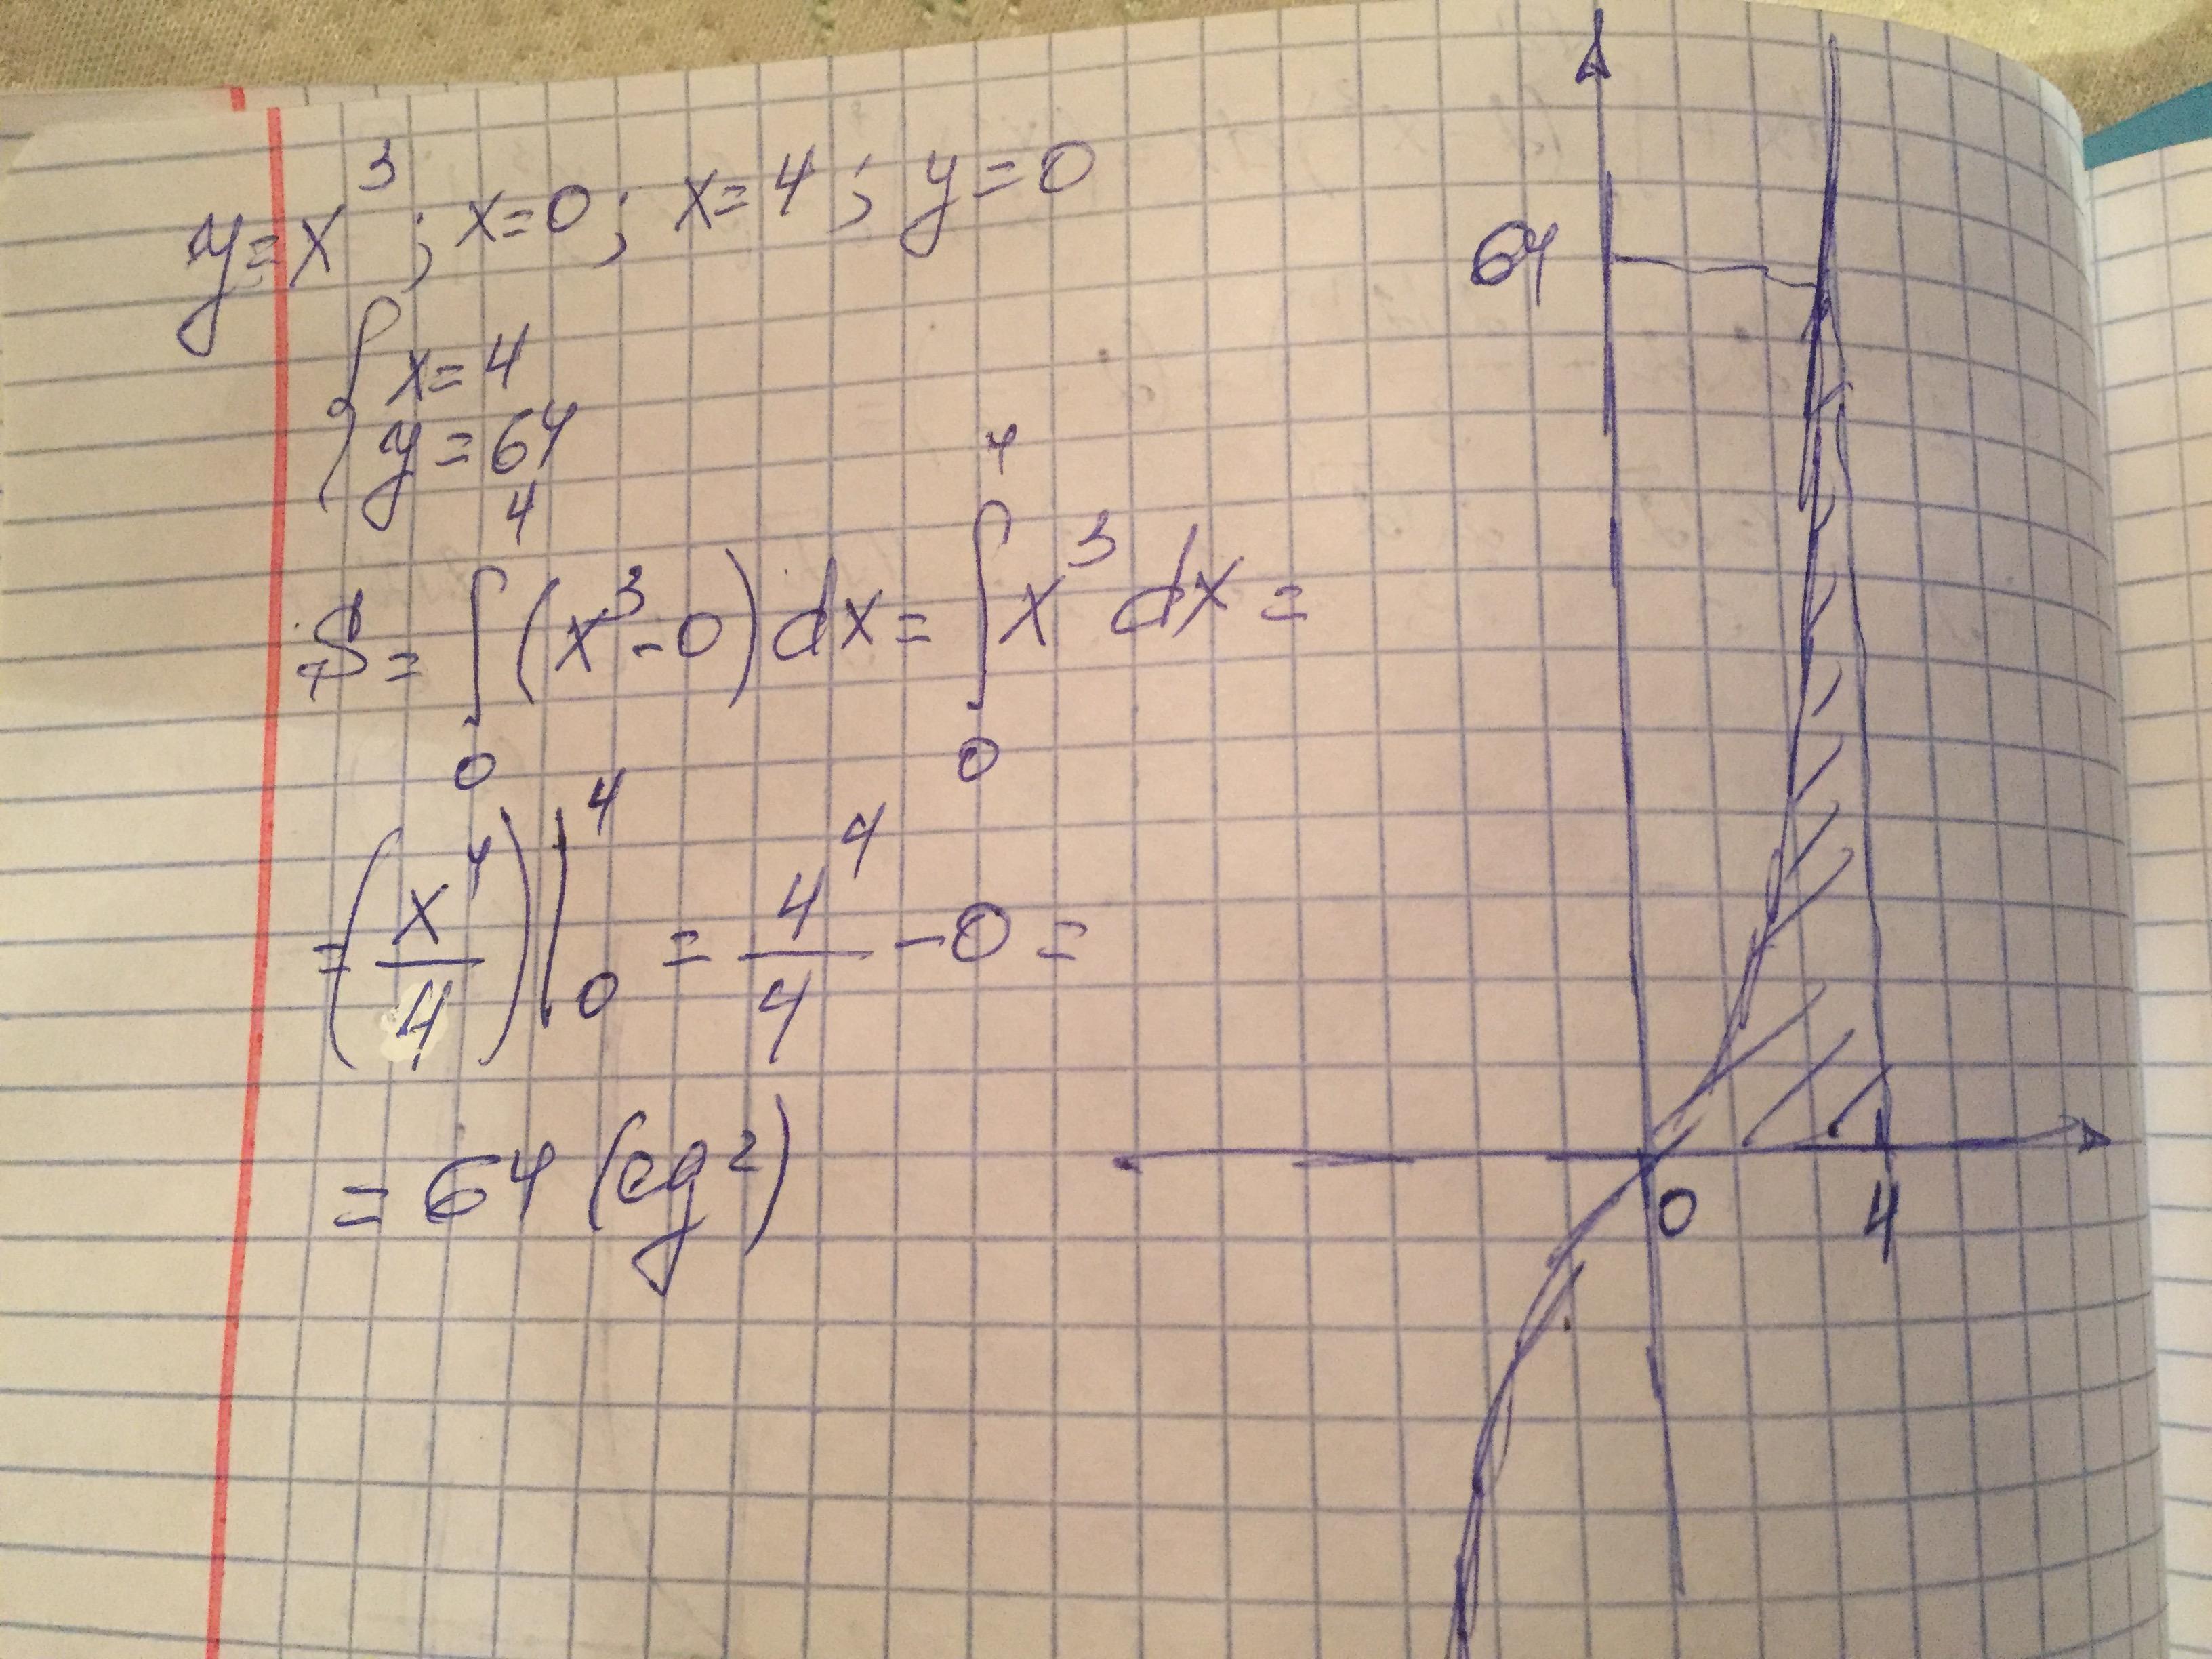 y=x³; x=0; x=4; y=0
{ x=4
y=64
S = ∫₀⁴ (x³-0) dx = ∫₀⁴ x³ dx =
= (x⁴/4) |₀⁴ = 4⁴/4 - 0 =
= 64 (ед²)
64
0 4